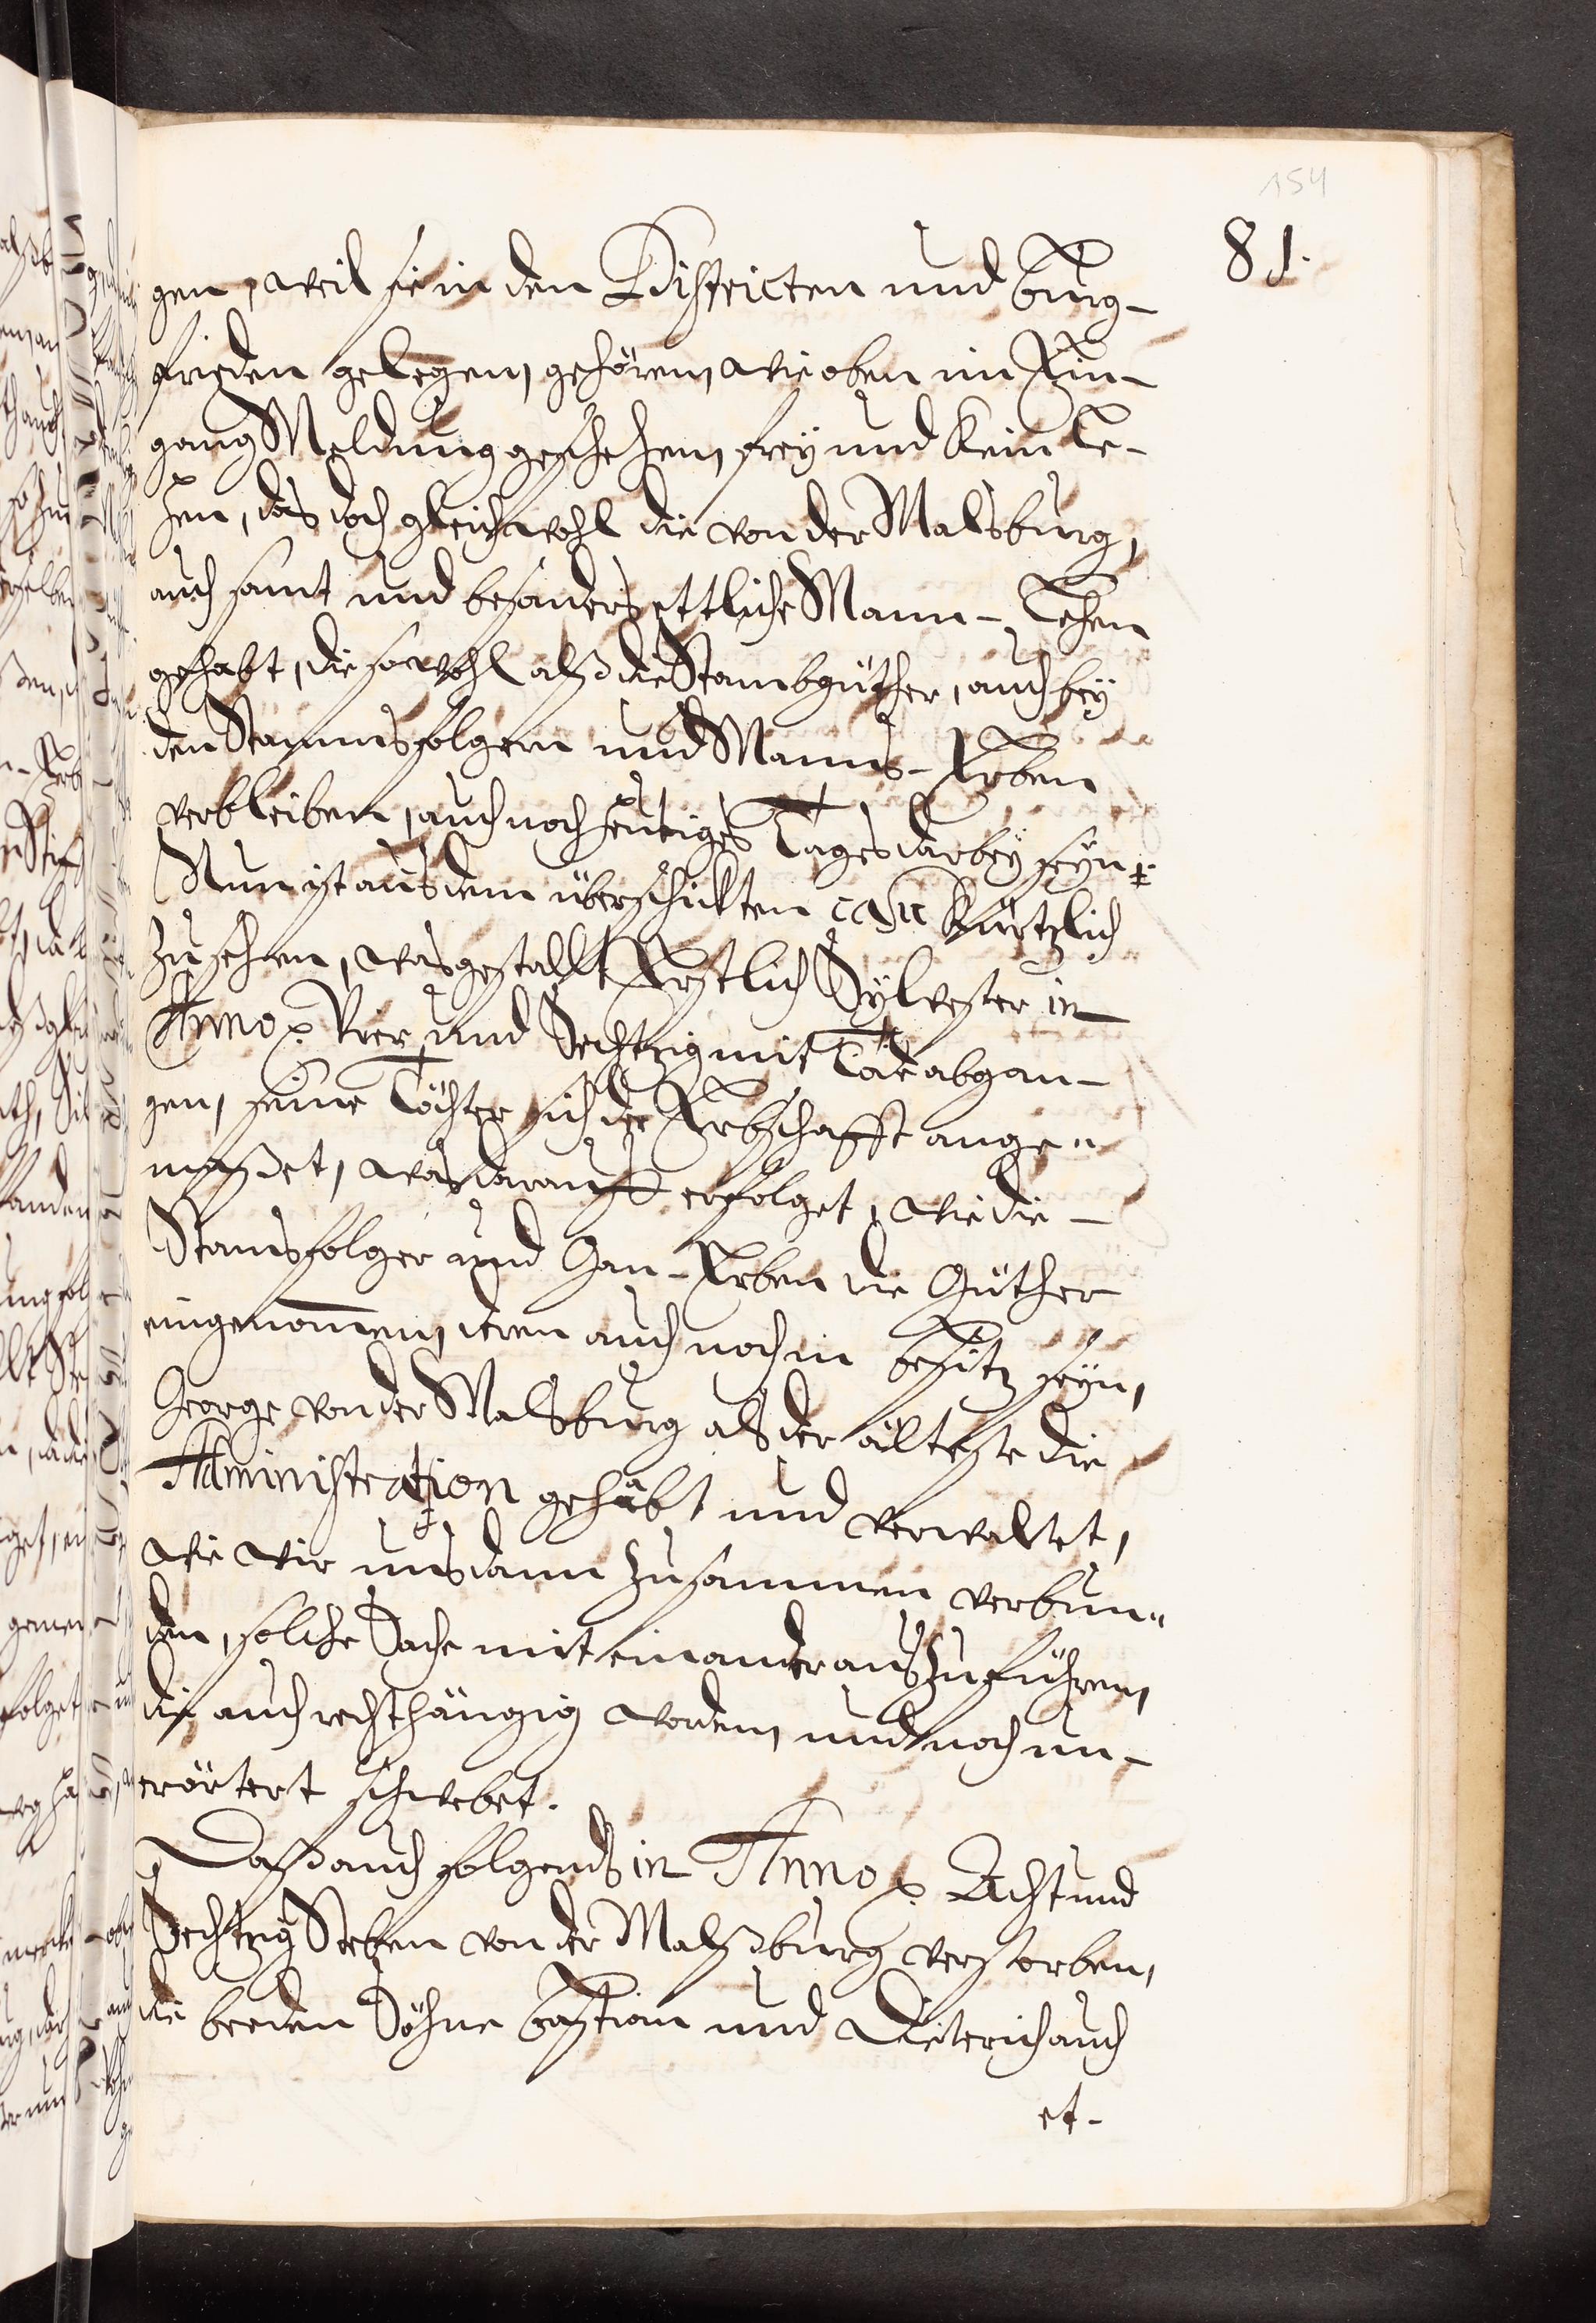 154
81.
gen, weil sie in den Districten und Burg-
frieden gelegen, gehören, wie oben im Ein-
gang Meldung geschehen, frey und kein Le-
hen, das doch gleichwohl die von der Malsburg,
auch samt und besonders ettliche Mann-Lehen
gehabt, die sowohl alß die Stambgüther, auch bey
den Stammsfolgern und Manns-Erben
verbleiben, auch noch heutiges Tages darbey seyn.
Nun ist aus dem überschickten casu kürtzlich
zu sehen, was gestallt Erstlich Sylvester in
Anno p. Vier und Sechtzig mit Tod abgan-
gen, seine Töchter sich der Erbschafft ange-
maßet, was darauff erfolget, wie die
Stamsfolger und Gan-Erben die Güther
eingenommen, deren auch noch in Besitz seyn,
George von der Malsburg als der älteste die
Administration gehabt und verwaltet,
wie wir uns dann zusammen verbun-
den, solche Sache miteinander auszuführen,
die auch rechthängig worden, und noch un-
erörtert schwebet.
Daß auch folgends in Anno p. Acht und
Sechtzig Steben von der Malßburg verstorben,
die beeden Söhne Bastian und Dieterich auch
et-